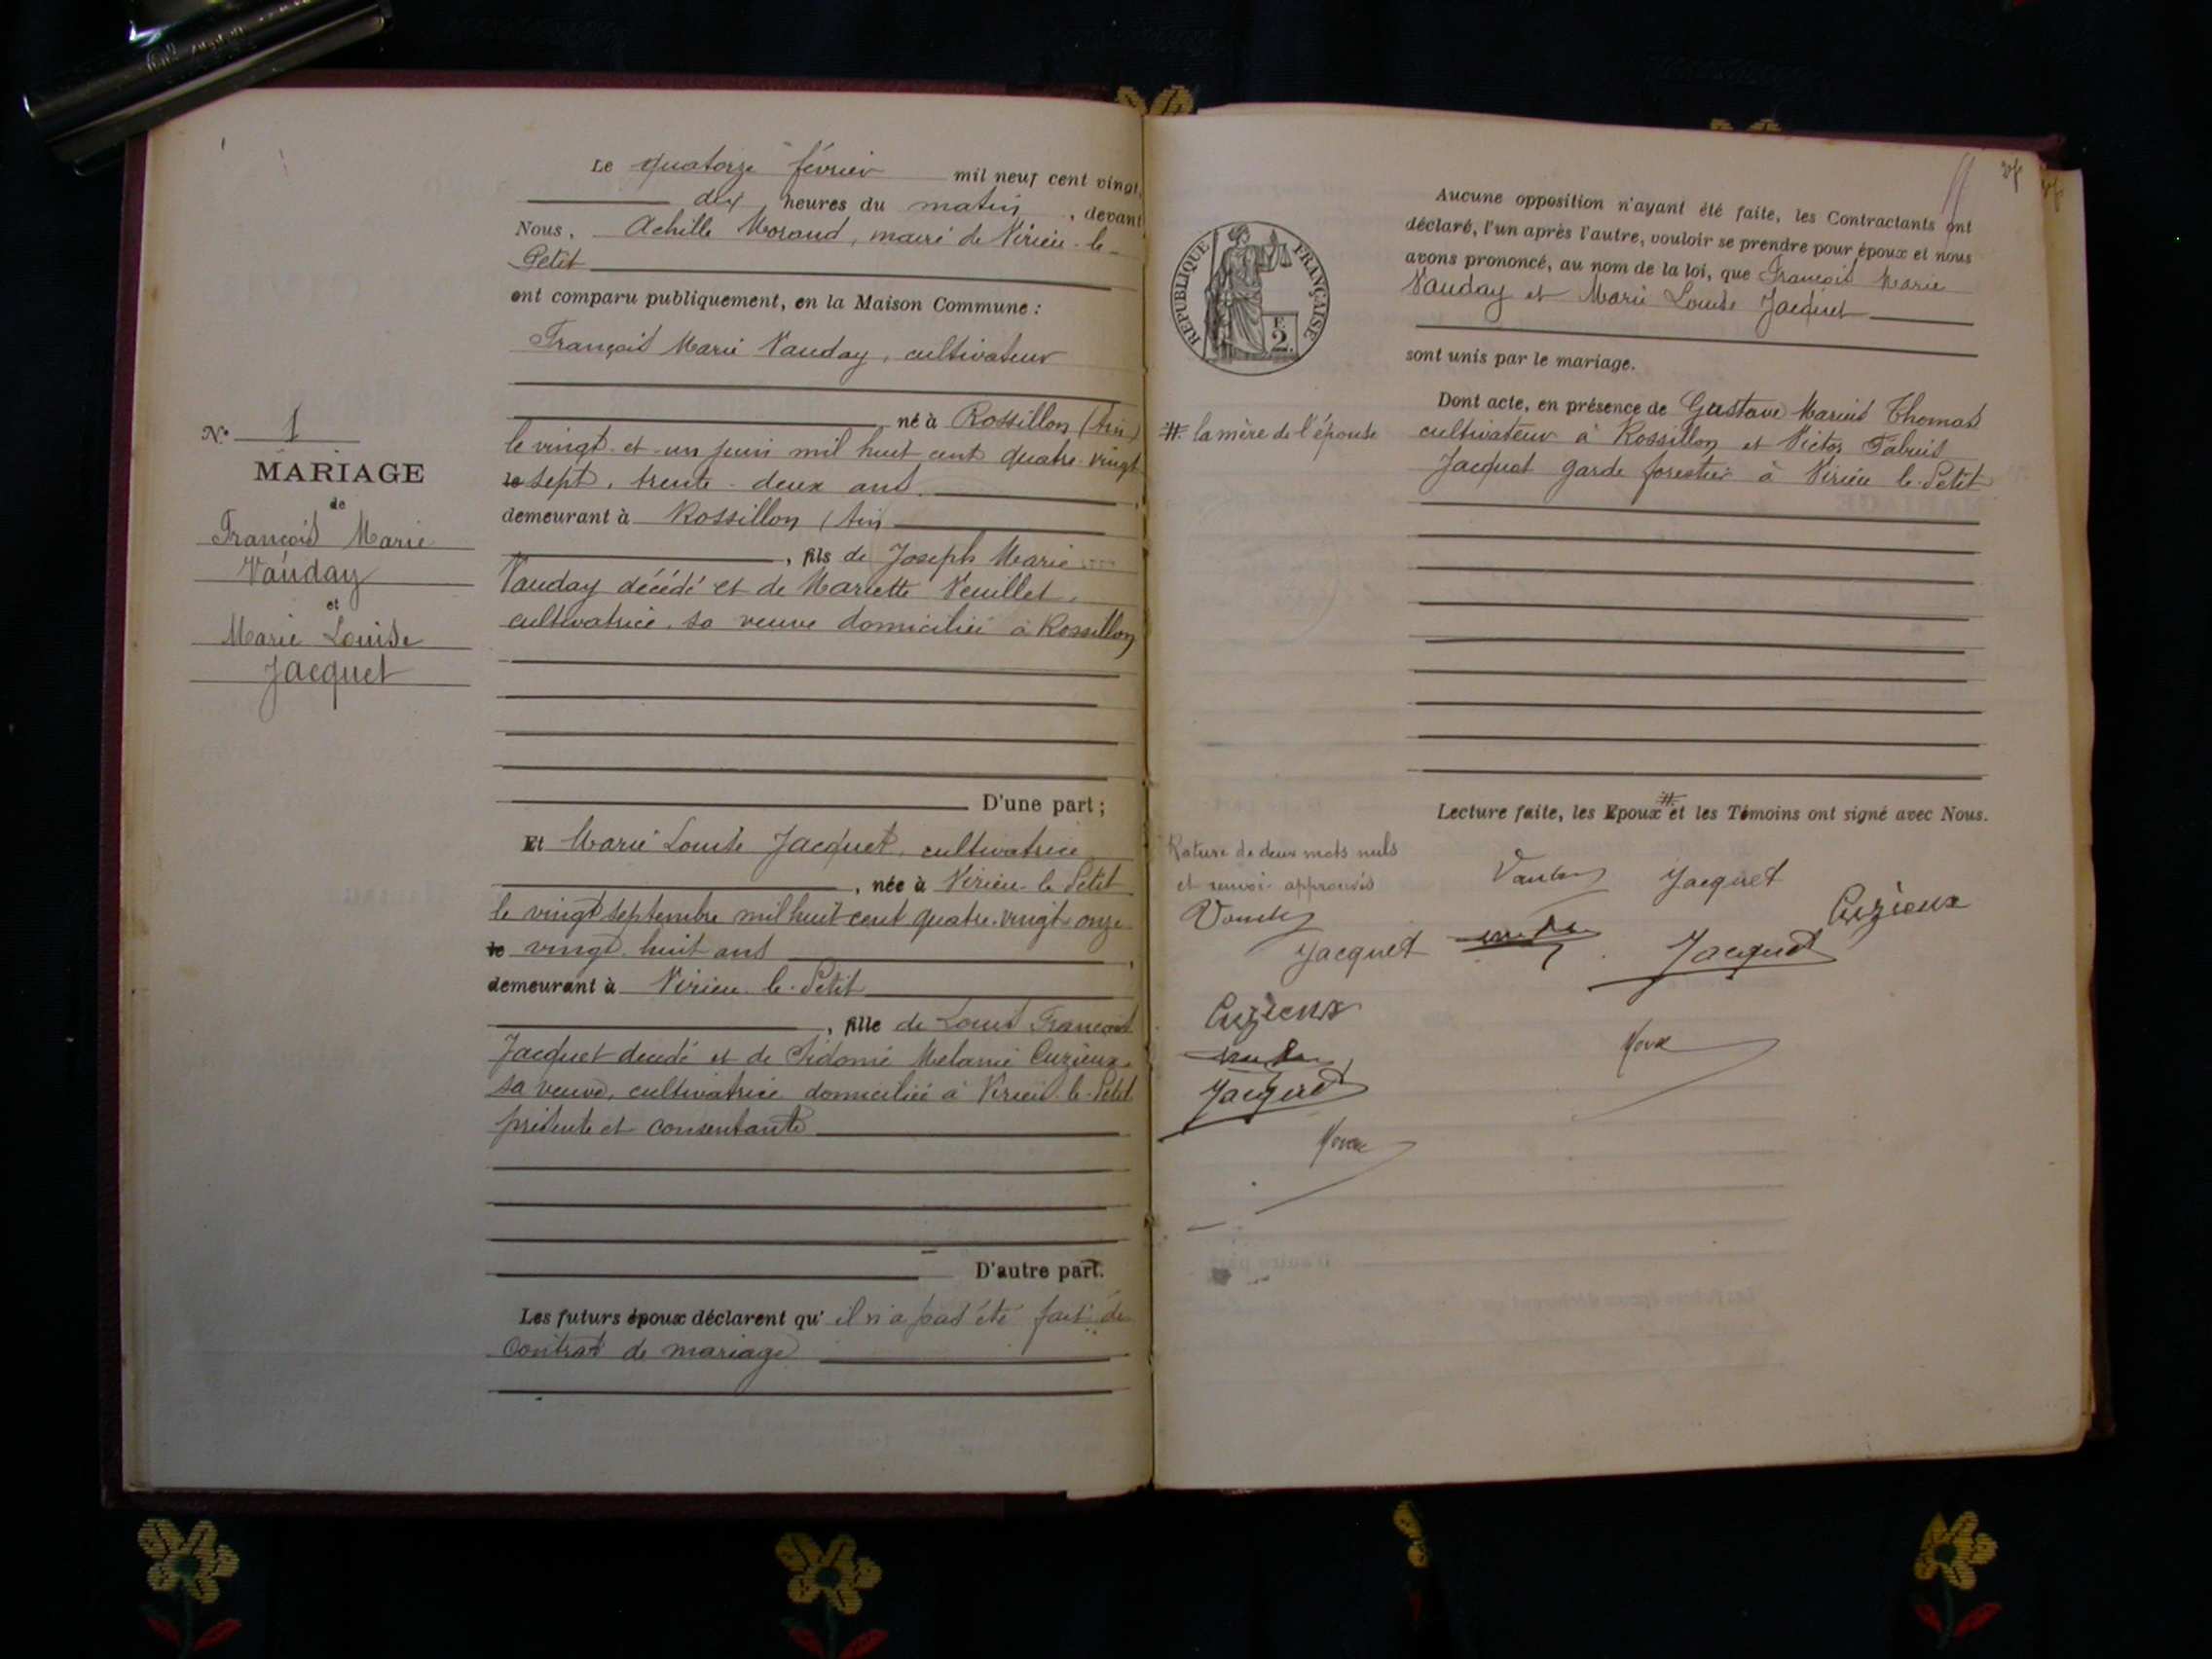 N° 1
MARIAGE
de
François Marie
Vauday
et
Marie Louise
Jacquet
Le quatorze février mil neuf cent vingt,
dix heures du matin, devant
Nous, Achille Morand, maire de Virieu-le-
Petit
ont comparu publiquement, en la Maison Commune :
François Marie Vauday, cultivateur
né à Rossillon (Ain)
le vingt-et-un juin mil huit cent quatre-vingt
le sept, trente-deux ans
demeurant à Rossillon (Ain
, fils de Joseph Marie
Vauday décédé et de Mariette Veuillet,
cultivatrice, sa veuve domiciliée à Rossillon
D'une part ;
Et Marie Louise Jacquet, cultivatrice
, née à Virieu-le-Petit
le vingt septembre mil huit cent quatre-vingt-onze
le vingt-huit ans
demeurant à Virieu-le-Petit
, fille de Louis François
Jacquet décédé et de Sidonie Mélanie Cuzieux
sa veuve, cultivatrice domiciliée à Virieu-le-Petit
présente et consentante
D'autre part.
Les futurs époux déclarent qu'il n'a pas été fait de
contrat de mariage
RÉPUBLIQUE FRANÇAISE
2 F.
Aucune opposition n'ayant été faite, les Contractants ont
déclaré, l'un après l'autre, vouloir se prendre pour époux et nous
avons prononcé, au nom de la loi, que François Marie
Vauday et Marie Louise Jacquet
sont unis par le mariage.
Dont acte, en présence de Gustave Marius Thomas
cultivateur à Rossillon et Victor Fabius
Jacquet garde forestier à Virieu-le-Petit
# la mère de l'épouse
Lecture faite, les Epoux # et les Témoins ont signé avec Nous.
Rature de deux mots nuls
et renvoi approuvés
Vauday Jacquet
Cuzieux
Vauday
Jacquet
Jacquet
Cuzieux
Jacquet